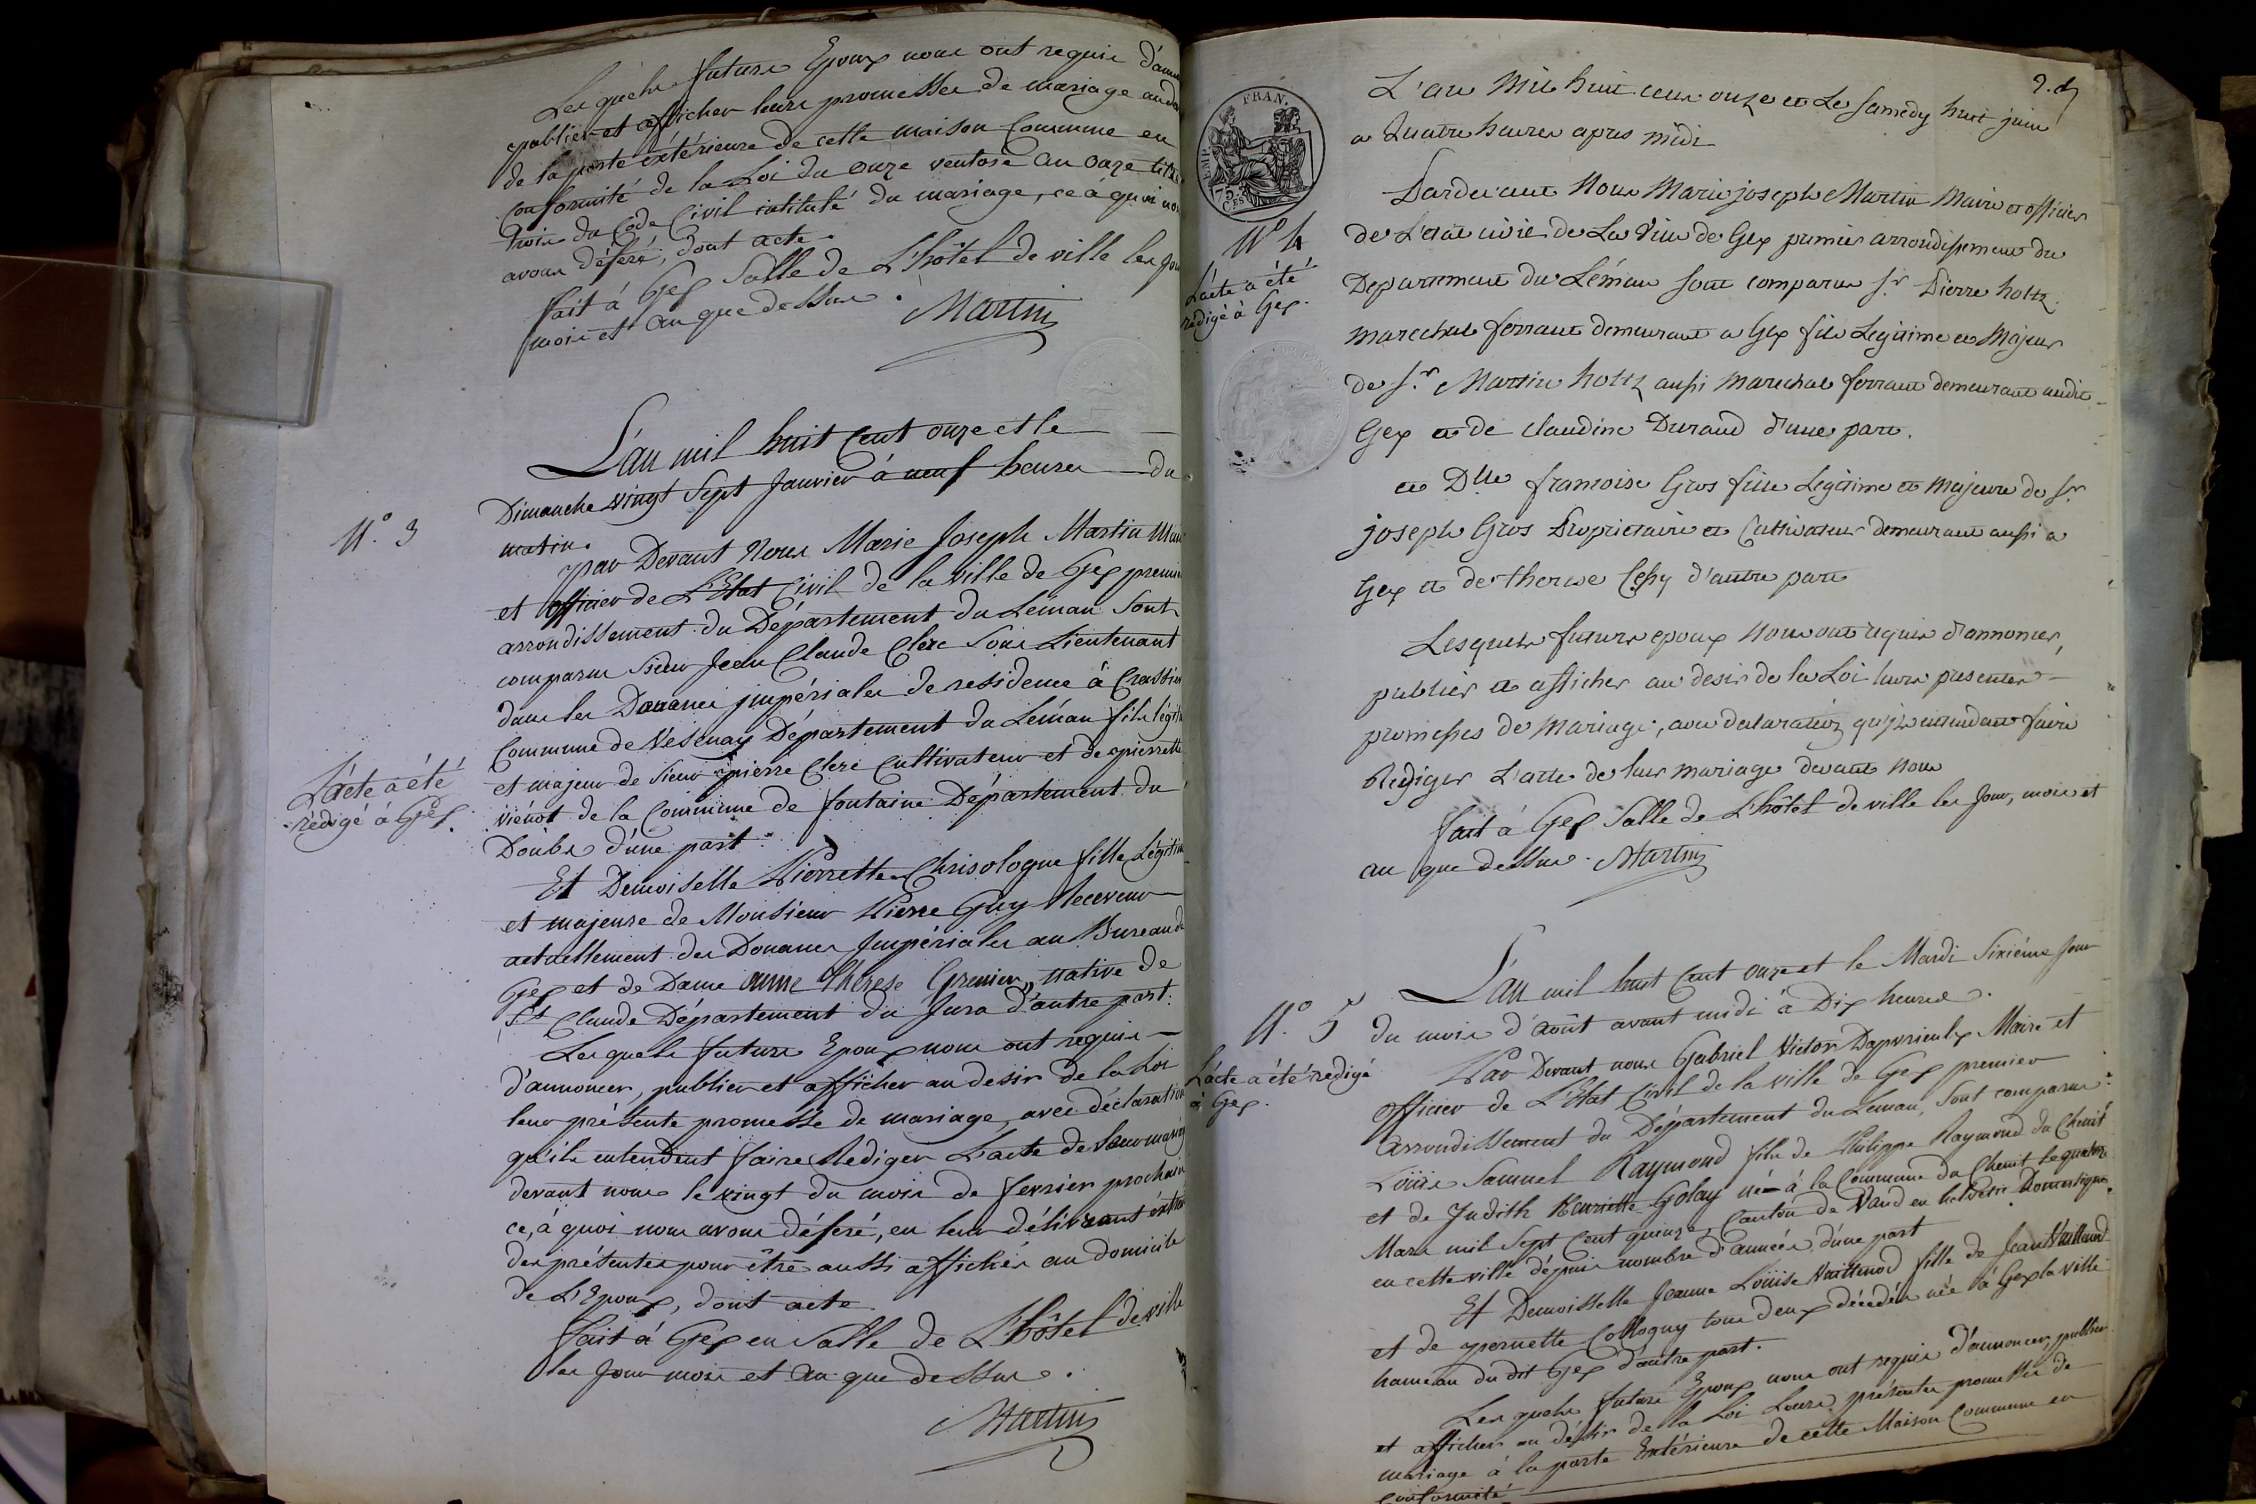 Lesquels futurs Epoux nous ont requis
publier et afficher leurs promesses de mariage
de la porte extérieure de cette maison Commune en
conformité de la Loi du onze ventose an onze
trois du Code Civil intitulé du mariage, ce à quoi
avons déféré, dont acte.
fait à Gex Salle de L'hôtel de ville les
mois et an que dessus. Martin
N.º 3
L'an mil huit Cent onze et le
Dimanche vingt Sept Janvier à neuf heures du
matin.
par Devant Nous Marie Joseph Martin
et officier de L'Etat Civil de la ville de Gex
arrondissement du Département du Leman Sont
comparus Sieur Jean Claude Clerc Sous Lieutenant
dans les Douanes impériales de residence à
Commune de Vesenay Département du Leman fils
et majeur de Sieur pierre Clerc Cultivateur et de pierrette
viénot de la Commune de fontaine Département du
Doubs d'une part.
L'acte a été
rédigé à Gex.
Et Demoiselle Pierrette Chrisologue fille
et majeure de Monsieur Pierre Guy Receveur
actuellement des Douanes Impériales au Bureau de
Gex et de Dame anne thérese Grenier, native de
St Claude Département du Jura d'autre part.
Lesquels futurs Epoux nous ont requis
d'annoncer, publier et afficher au desir de la Loi
leur présente promesse de mariage, avec déclaration
qu'ils entendent faire Rediger L'acte de leur
devant nous le vingt du mois de fevrier prochain
ce, à quoi nous avons déféré, en leur délivrant
des présentes pour être aussi affichés au domicile
de L'Epoux, dont acte
fait à Gex en Salle de L'hôtel de ville
les Jour mois et an que dessus.
Martin
EMP. FRAN.
75
CES
L'an Mil huit cent onze et Le Samedy huit juin
a Quatre heures apres midi
N.º 4
L'acte a été
rédigé à Gex.
Pardevant Nous Marie joseph Martin Maire et officier
de L'etat civil de La Ville de Gex premier arrondissement du
Departement du Léman sont comparus Sr Pierre holtz
marechal ferrant demeurant a Gex fils Legitime et Majeur
de Sr Martin holtz aussi marechal ferrant demeurant audit
Gex et de claudine Durand d'une part.
et Dlle francoise Gros fille Legitime et Majeure de Sr
joseph Gros Proprietaire et Cultivateur demeurant aussi a
Gex et de therese d'autre part
Lesquels futurs epoux Nous ont requis d'annoncer,
publier et afficher au desir de la Loi leurs presentes
promesses de mariage, avec declaration qu'ils entendent faire
Rediger L'acte de leur mariage devant Nous
fait à Gex Salle de L'hôtel de ville les Jour, mois et
an que dessus. Martin
N.º 5
L'acte a été rédigé
à Gex.
L'an mil huit Cent onze et le Mardi Sixième Jour
du mois d'août avant midi à Dix heures.
Par Devant nous Gabriel Victor Maire et
officier de L'Etat Civil de la ville de Gex premier
arrondissement du Département du Leman, Sont comparus
Louis Samuel Raymond fils de Philippe Raymond du Chenit
et de Judith Henriette Golay né à la Commune du Chenit le
Mars mil Sept Cent quinze, Canton de Vaud en helvétie Domestique
en cette ville depuis nombre d'années, d'une part
Et Demoiselle Jeanne Louise Vaillenod fille de Jean Vaillenod
et de pernette Collogny tous deux décédés née à Gex la ville
hameau du dit Gex d'autre part.
Lesquels futurs Epoux nous ont requis d'annoncer, publier
et afficher au désir de la Loi Leurs présentes promesses de
mariage à la porte Extérieure de cette Maison Commune en
conformité